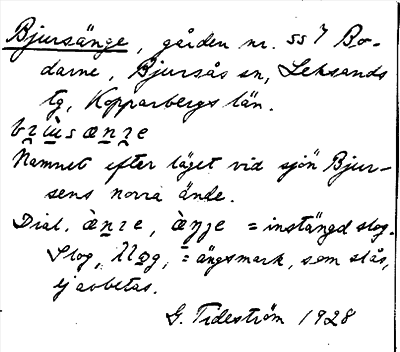 Bjursänge, gården nr. ss 7 Bo-
darne, Bjursås sn, Leksands
tg, Kopparbergs län.
Namnet efter läget vid sjön Bjur-
sens norra ände.
Dial. = instängd slog.
Slog, = ängsmark, som slås,
ej avbetas.
G. Tideström 1928